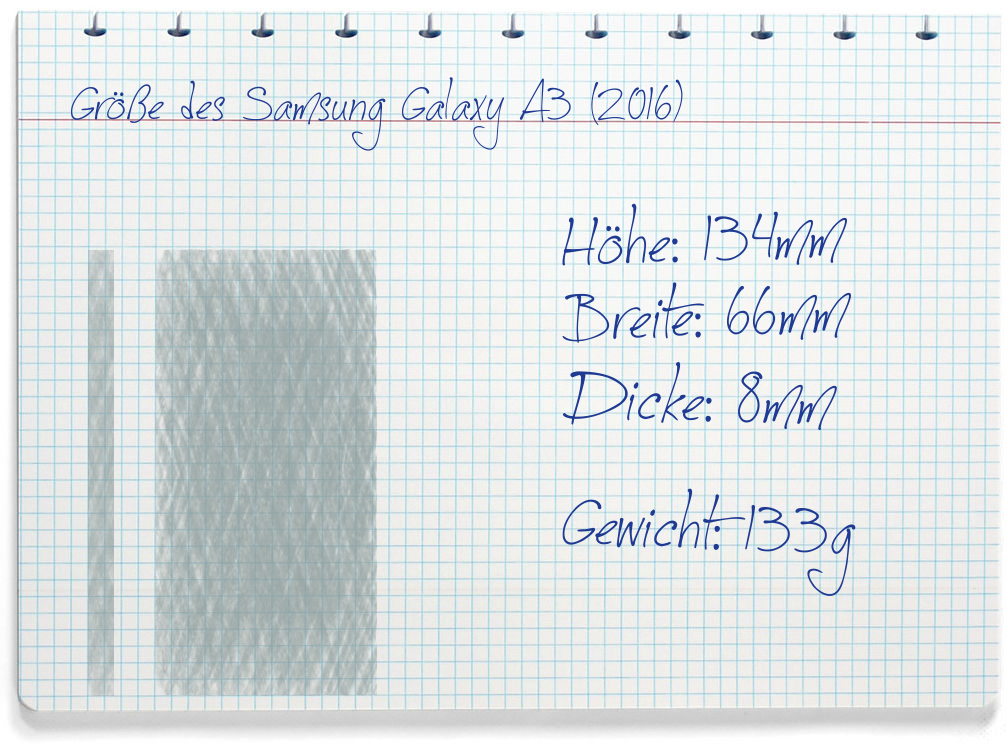 Größe des Samsung Galaxy A3 (2016)
Höhe: 134mm
Breite: 66mm
Dicke: 8mm
Gewicht: 133g